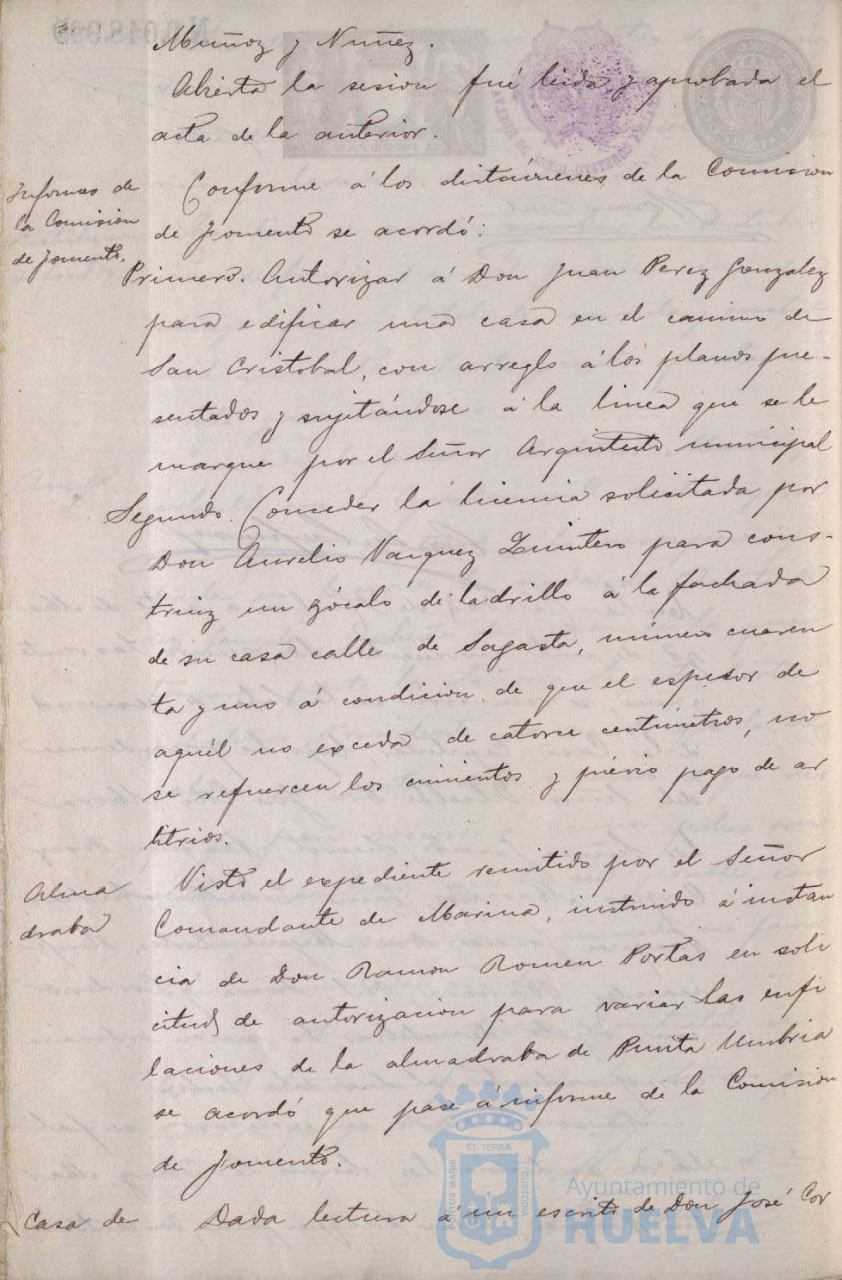 Muñoz y Nuñez.
Abierta la sesion fué leida y aprobada el
acta de la anterior.
Informes de
la Comision
de Fomento.
Conforme á los dictámenes de la Comision
de Fomento se acordó:
Primero. Autorizar á Don Juan Perez Gonzalez
para edificar una casa en el camino de
San Cristobal, con arreglo á los planos pre-
sentados y sujetándose á la linea que se le
marque por el Señor Arquitecto municipal
Segundo. Conceder la licencia solicitada por
Don Aurelio Vazquez Quintero para cons-
truir un zócalo de ladrillo á la fachada
de su casa calle de Sagasta, número cuaren
ta y uno á condicion de que el espesor de
aquél no exceda de catorce centimetros, no
se refuercen los cimientos y prévio pago de ar
bitrios.
Alma
draba
Visto el expediente remitido por el Señor
Comandante de Marina, instruido á instan
cia de Don Ramon Romeu Portas en soli
citud de autorizacion para variar las enfi
laciones de la almadraba de Punta Umbria
se acordó que pase á informe de la Comision
de Fomento.
Casa de
Dada lectura á un escrito de Don José Cor
PORTUS MARIS
ET TERRÆ
CUSTODIA
Ayuntamiento de
HUELVA